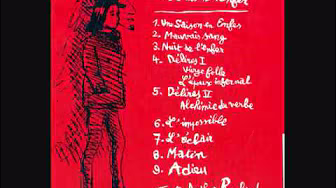 1. Une Saison en Enfer
2. Mauvais sang
3. Nuit de l'enfer
4. Délires I
Vierge folle
L'époux infernal
5. Délires II
Alchimie du verbe
6. L'impossible
7. L'éclair
8. Matin
9. Adieu